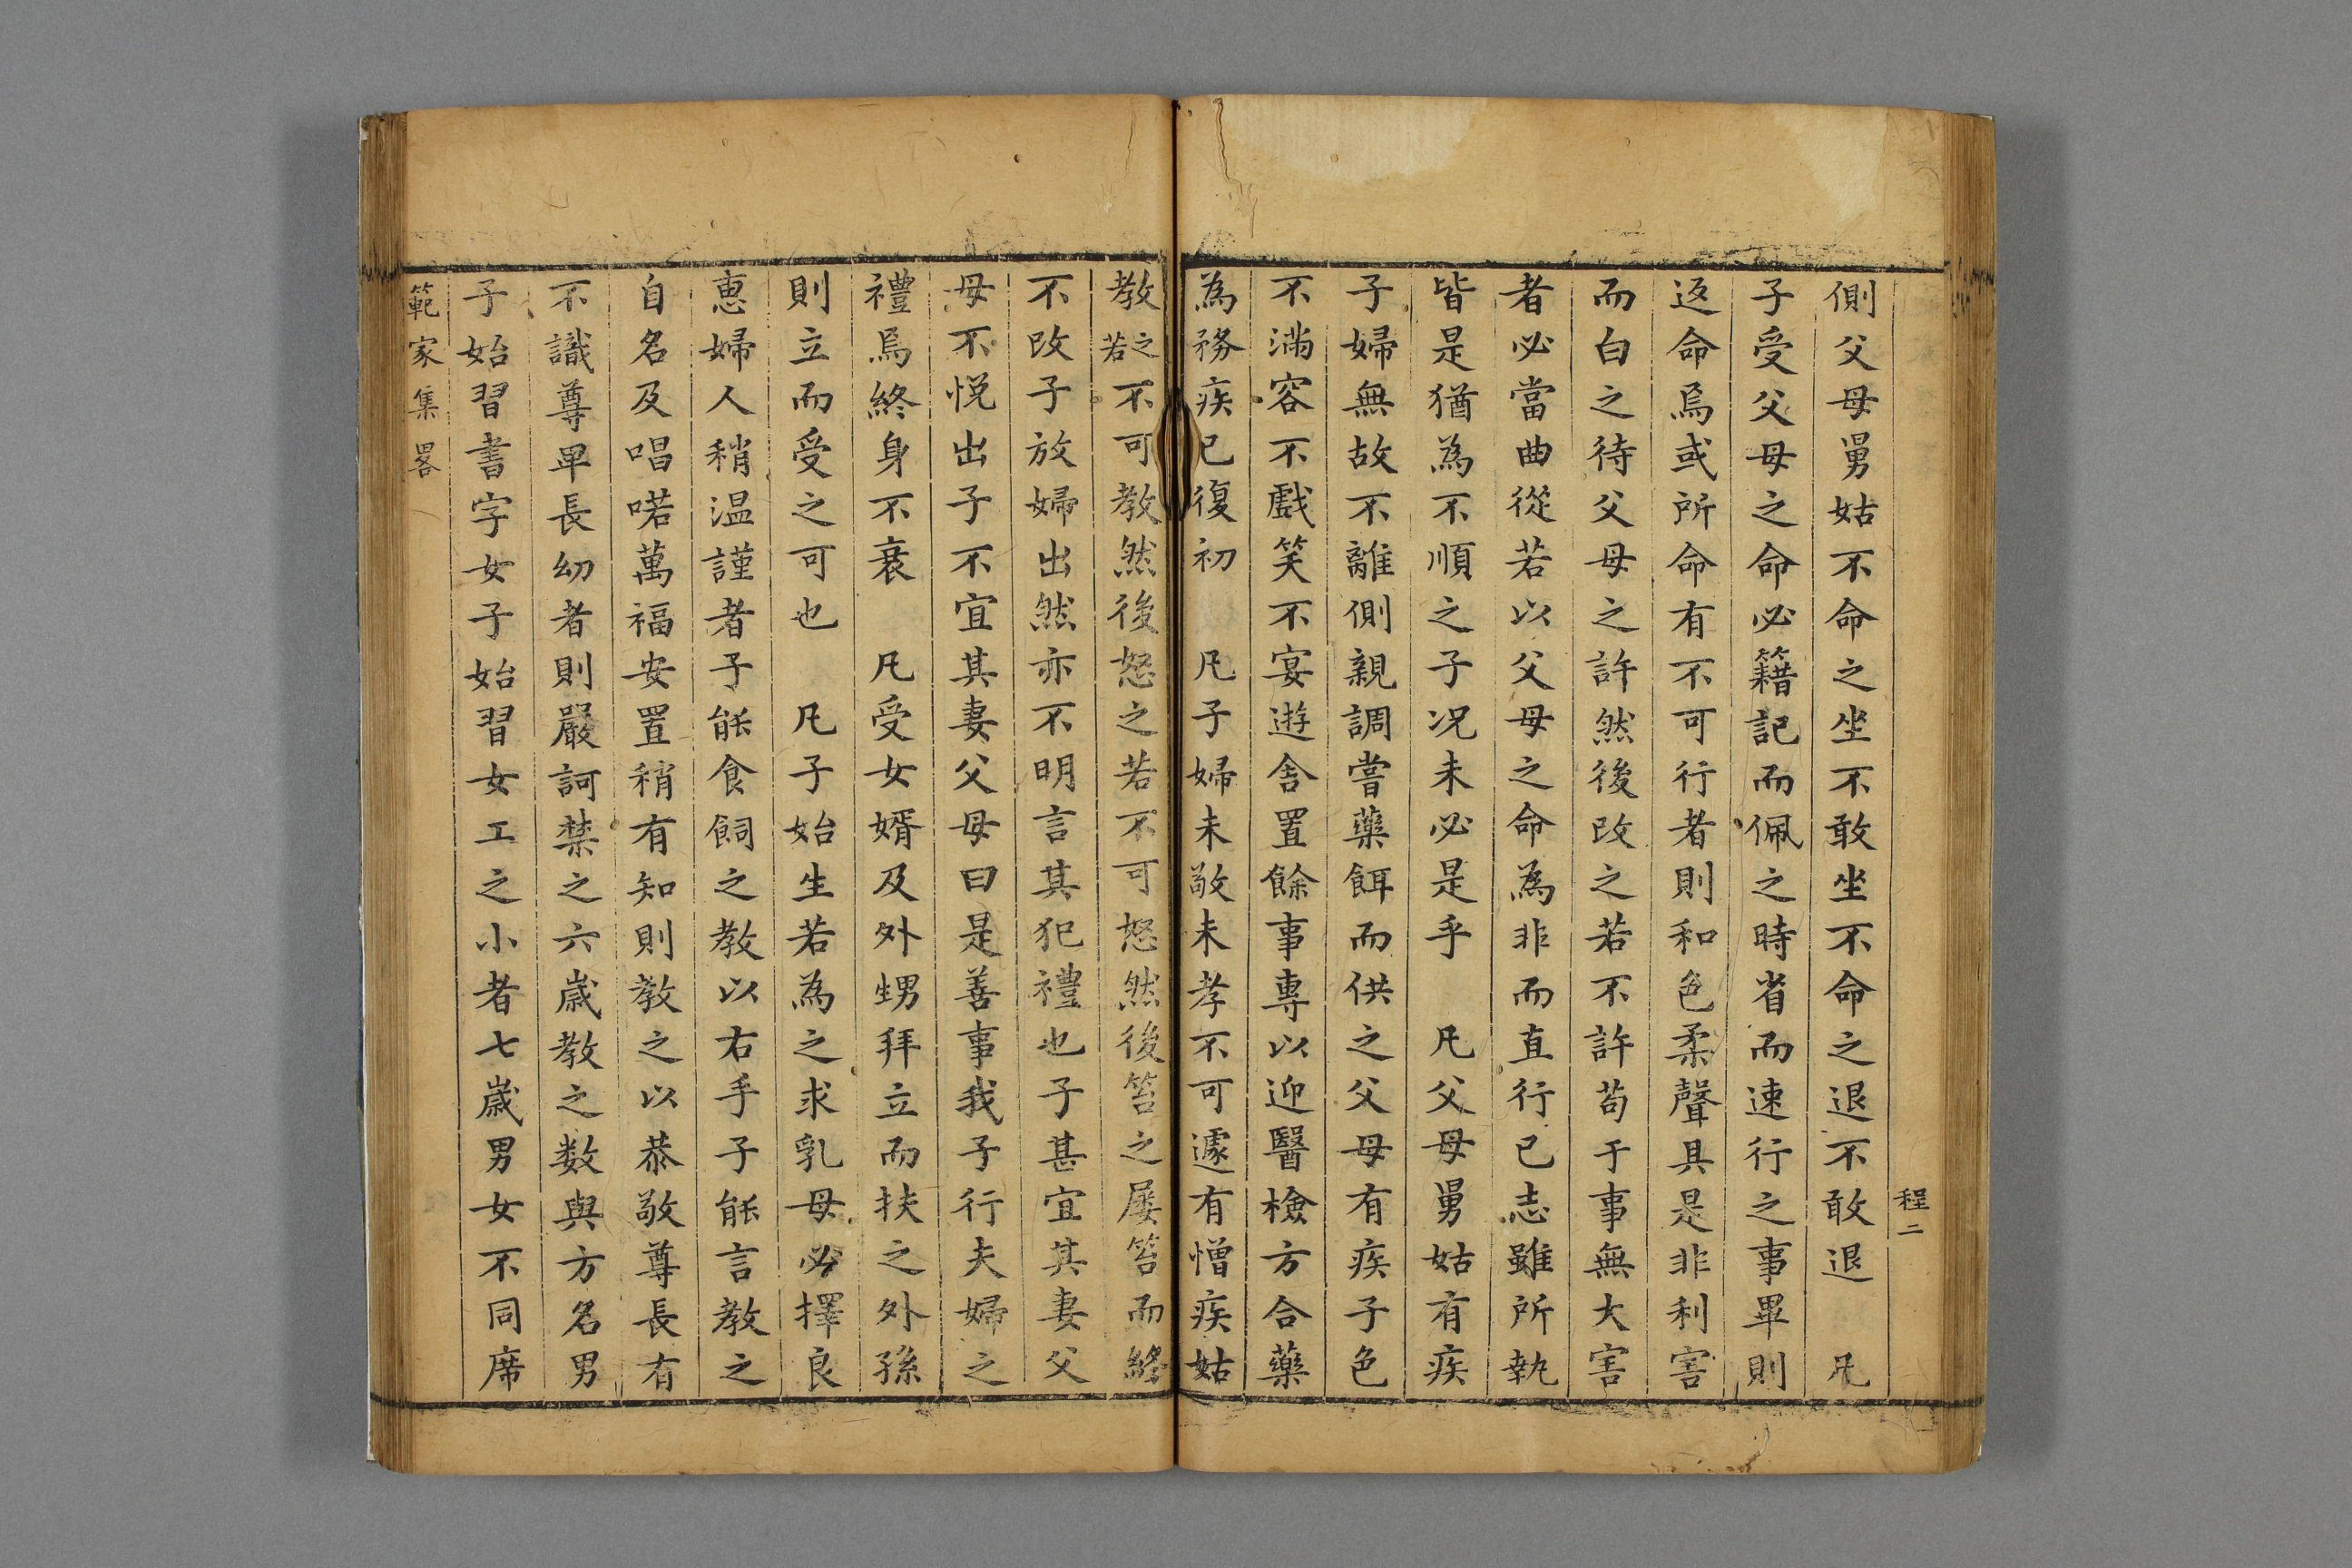 程二
側父母舅姑不命之坐不敢坐不命之退不敢退　凡
子受父母之命必籍記而佩之時省而速行之事畢則
返命焉或所命有不可行者則和色柔聲具是非利害
而白之待父母之許然後改之若不許苟于事無大害
者必當曲從若以父母之命為非而直行已志雖所執
皆是猶為不順之子况未必是乎　凡父母舅姑有疾
子婦無故不離側親調嘗藥餌而供之父母有疾子色
不滿容不戲笑不宴遊舍置餘事專以迎醫檢方合藥
為務疾已復初　凡子婦未敬未孝不可遽有憎疾姑
教之若不可教然後怒之若不可怒然後笞之屡笞而終
不改子放婦出然亦不明言其犯禮也子甚宜其妻父
母不悦出子不宜其妻父母曰是善事我子行夫婦之
禮焉終身不衰　凡受女婿及外甥拜立而扶之外孫
則立而受之可也　凡子始生若為之求乳母必擇良
惠婦人稍温謹者子能食飼之教以右手子能言教之
自名及唱喏萬福安置稍有知則教之以恭敬尊長有
不識尊卑長幼者則嚴訶禁之六歲教之数與方名男
子始習書字女子始習女工之小者七歲男女不同席
範家集畧